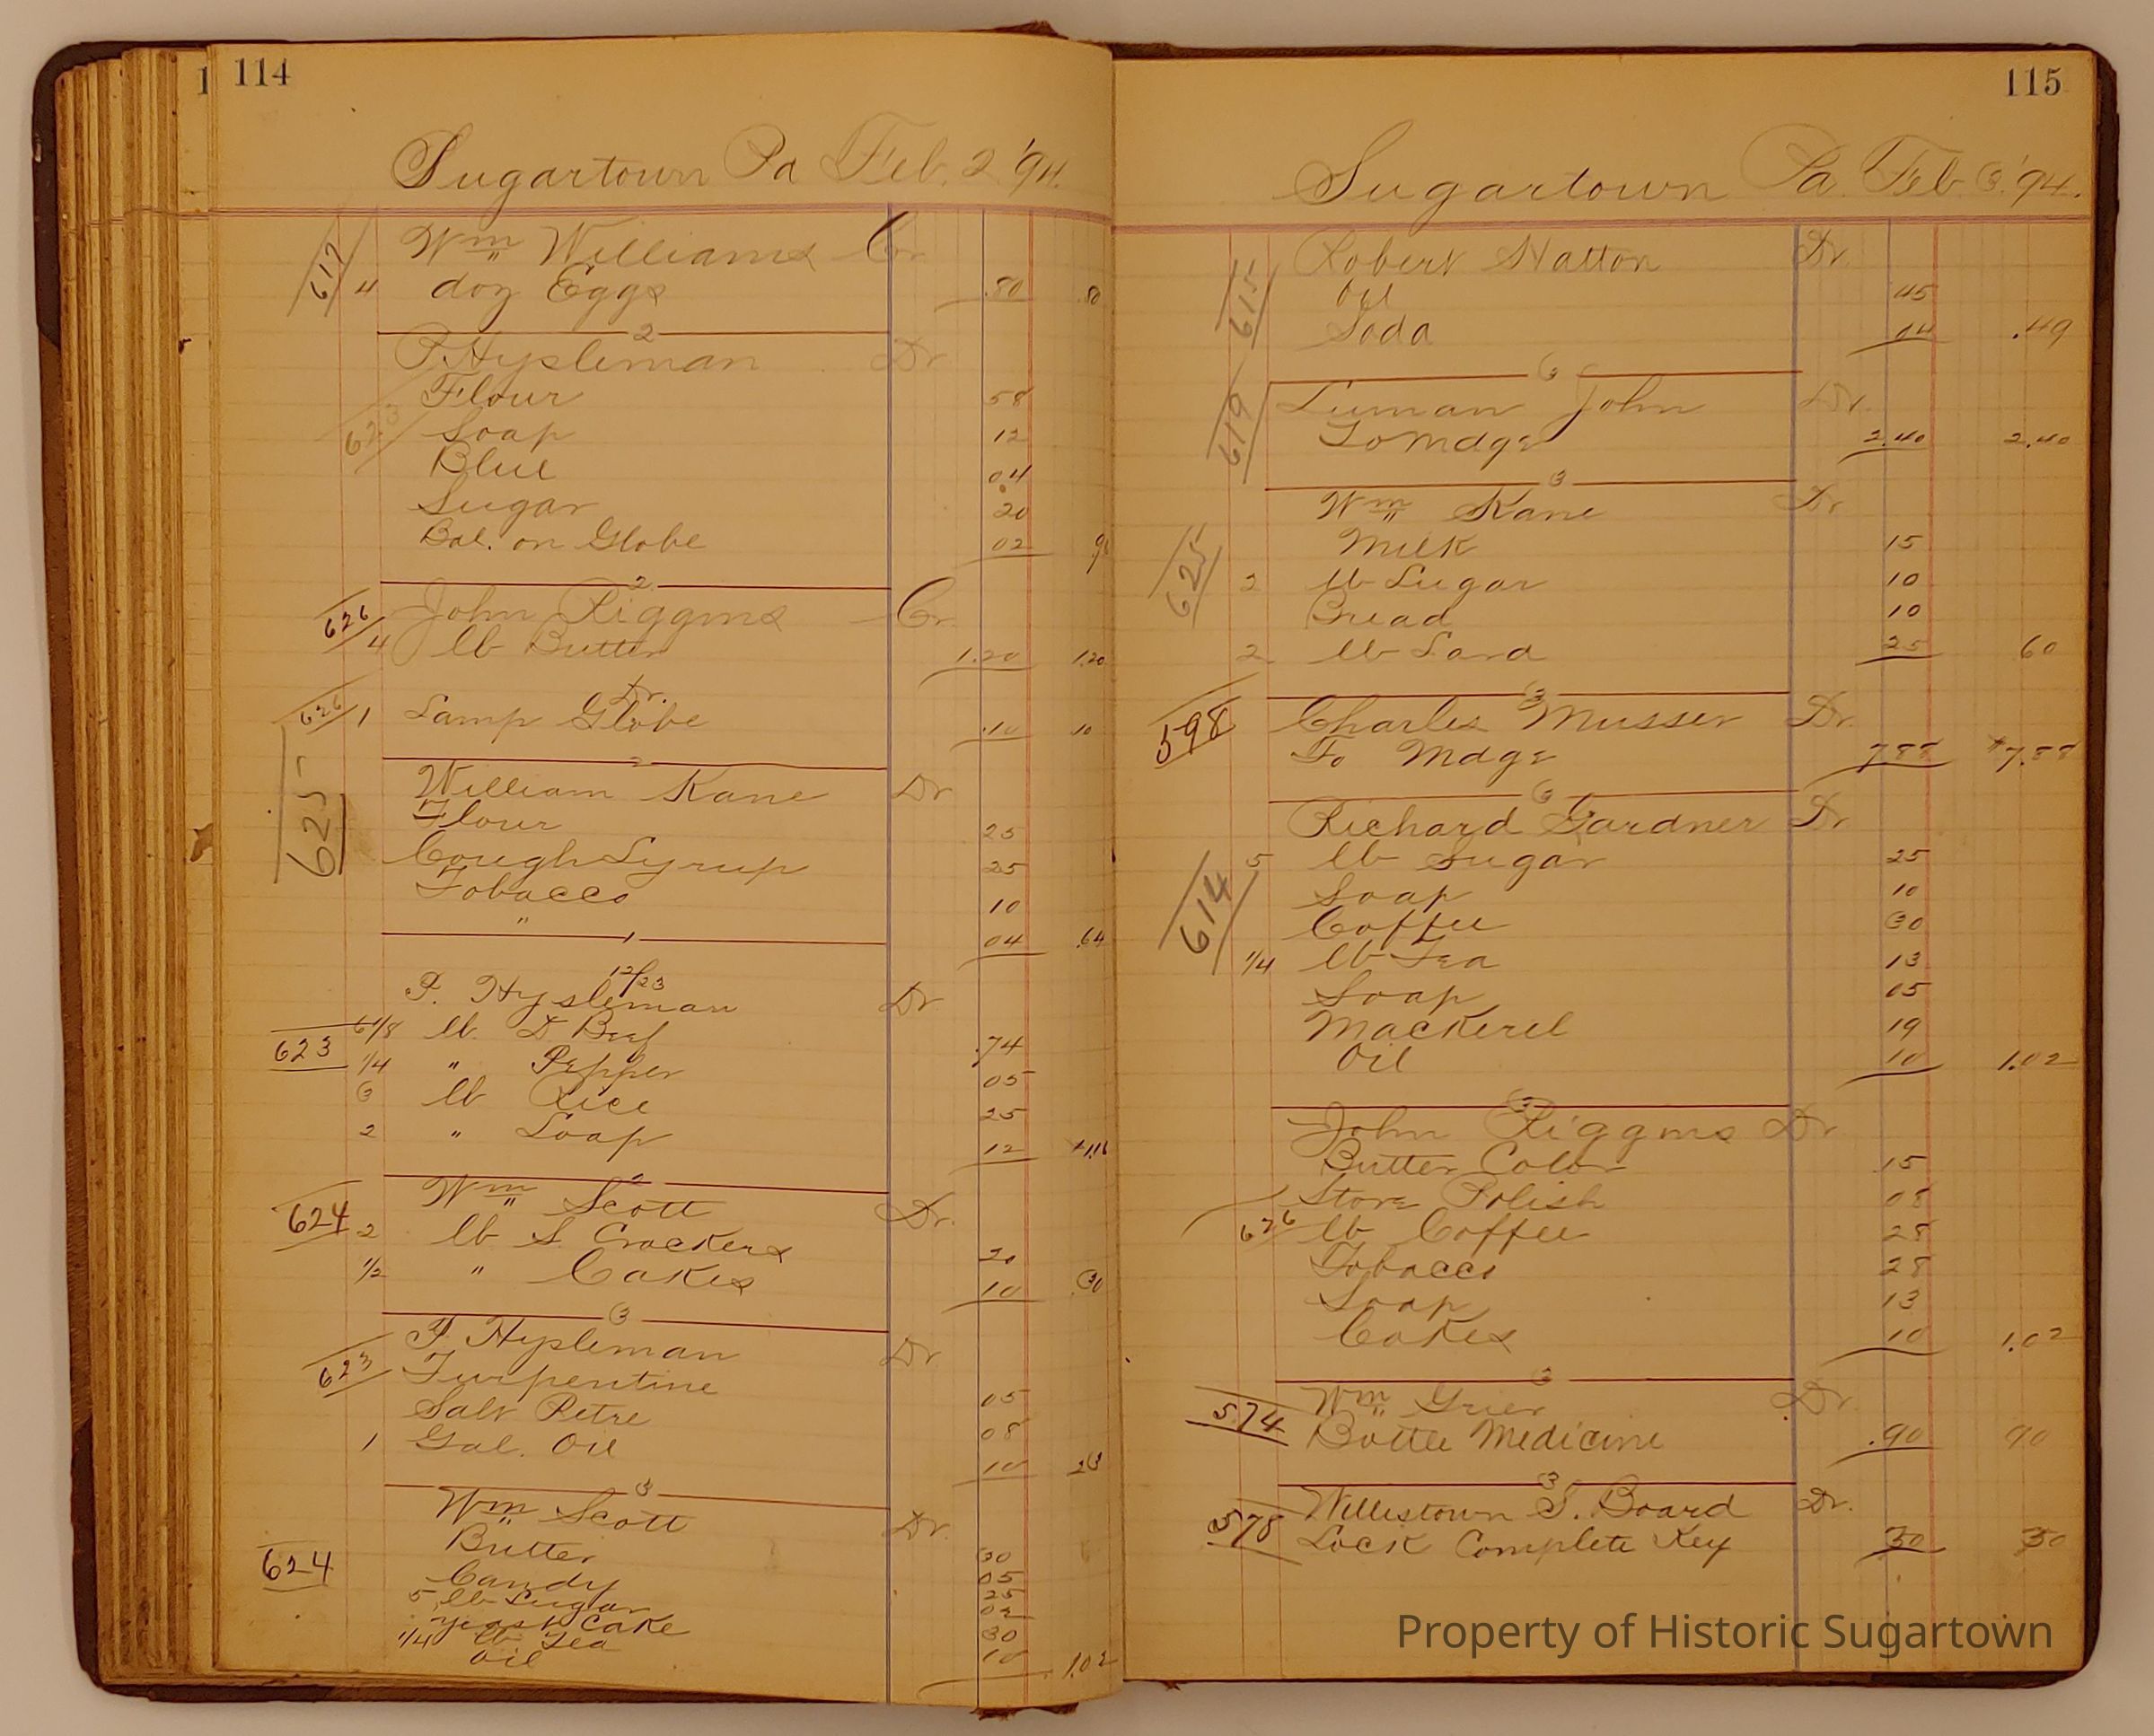 114
Sugartown Pa Feb. 2 '94.
617
Wm Williams Cr.
4 doz Eggs .80 .80
2
P. Hysleman Dr
623
Flour 58
Soap 12
Blue 04
Sugar 20
Bal. on Globe 02 .96
2
626 John Riggins Cr.
4 lb Butter 1.20 1.20
Dr.
626 1 Lamp Globe .10 10
2
625
William Kane Dr
Flour 25
Cough Syrup 25
Tobacco 10
" 04 .64
1
12/23
P. Hysleman Dr
6 1/8 lb D Beef .74
623 1/4 " Pepper 05
3 lb Rice 25
2 " Soap 12 1.16
2
Wm Scott Dr.
624 2 lb S. Crackers 20
1/2 " Cakes 10 .30
3
P Hysleman Dr
623 Turpentine 05
Salt Petre 08
1 Gal. Oil 10 23
3
Wm Scott Dr.
Butter 30
624 Candy 05
5 lb Sugar 25
Yeast Cake 02
1/4 lb Tea 30
Oil 10 1.02
1
115
Sugartown Pa. Feb 3 '94.
Robert Hatton Dr.
615
Oil 45
Soda 04 .49
3
619 Luman John Dr.
To Mdge 2.40 2.40
3
Wm Kane Dr
625
Milk 15
2 lb Sugar 10
Bread 10
2 lb Lard 25 60
3
598 Charles Musser Dr.
To Mdge 7.88 $7.88
3
Richard Gardner Dr
614
5 lb Sugar 25
Soap 10
Coffee 30
1/4 lb Tea 13
Soap 05
Mackerel 19
Oil 10 1.02
3
John Riggins Dr
Butter Color 15
Stove Polish 08
626 lb Coffee 28
Tobacco 28
Soap 13
Cakes 10 1.02
3
Wm Grier Dr.
574 Bottle Medicine .90 90
3
Willistown S. Board Dr.
578 Lock Complete Key 30 30
Property of Historic Sugartown